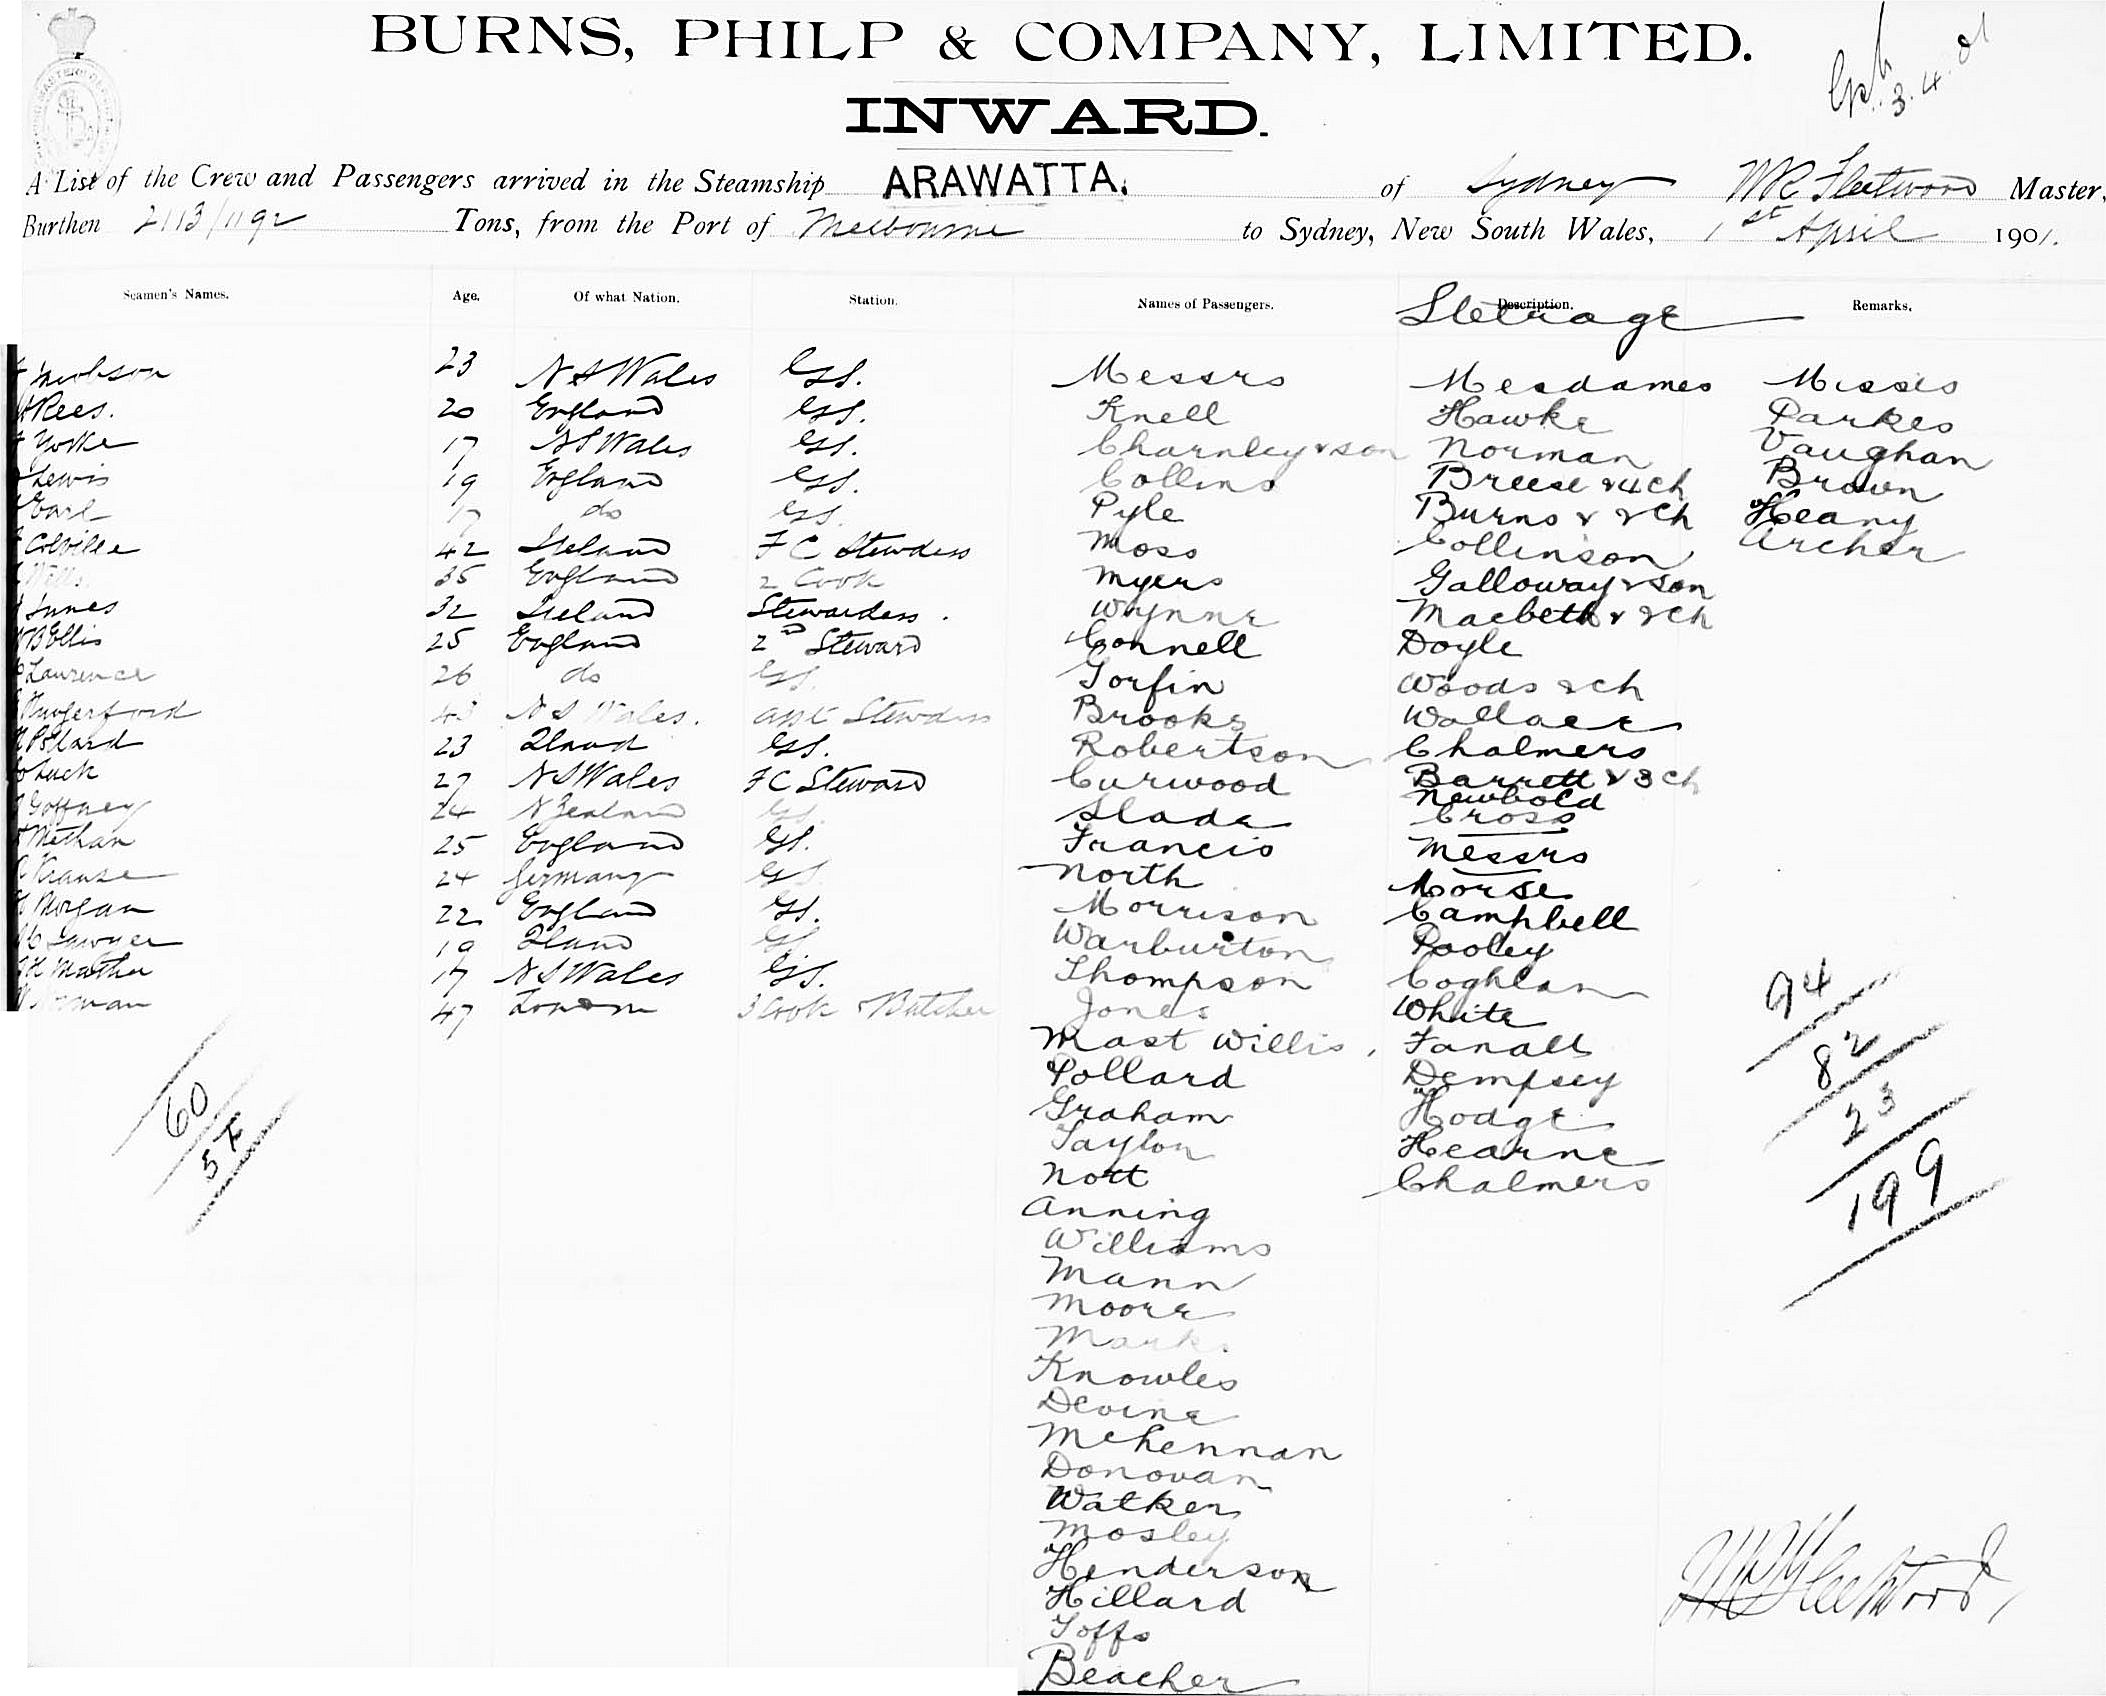 BURNS, PHILP & COMPANY, LIMITED.
INWARD.
3.4.01
A List of the Crew and Passengers arrived in the Steamship ARAWATTA. of Sydney W R Fleetwood Master,
Burthen 2113/1192 Tons, from the Port of Melbourne to Sydney, New South Wales, 1st April 1901.
Seamen's Names. Age. Of what Nation. Station. Names of Passengers. Description. Remarks.
Steerage
23 N S Wales GSS. Messrs Mesdames Misses
Rees. 20 England GSS. Knell Hawke Parkes
Yorke 17 N S Wales GSS. Charnley & son Norman Vaughan
Lewis 19 England GSS. Collins Breese & 4 ch Brown
Earl 17 do GSS. Pyle Burns & 2 ch Heany
Colville 42 Ireland F C Stewdess Moss Collinson Archer
Wills 35 England 2 Cook Myers Galloway & son
Innes 32 Ireland Stewardess. Wynne Macbeth & 2 ch
B Ellis 25 England 2nd Steward Connell Doyle
Laurence 26 do GSS. Gorfin Woods 2 ch
Hungerford 43 N S Wales. asst Stewdess Brooks Wallace
Pollard 23 Qland GSS. Robertson Chalmers
Luck 27 N S Wales F C Steward Curwood Barrett & 3 ch
Newbold
Goffney 24 N Zealand GSS. Slade Cross
Methan 25 England GSS. Francis Messrs
Krause 24 Germany GSS North Morse
Morgan 22 England GSS. Morrison Campbell
Sawyer 19 Qland GSS Warburton Pooley
Mather 17 N S Wales GSS. Thompson Coghlan
47 London 3 Cook & Butcher Jones White
Mast Willis, Fanall
Pollard Dempsey
Graham Hodge
Taylor Hearne
Nott Chalmers
Anning
Williams
Mann
Moore
Marks
Knowles
Devine
McKennan
Donovan
Walker
Mosley
Henderson
Hillard
Toffs
Beacher
60
57
94
82
23
199
W R Fleetwood,